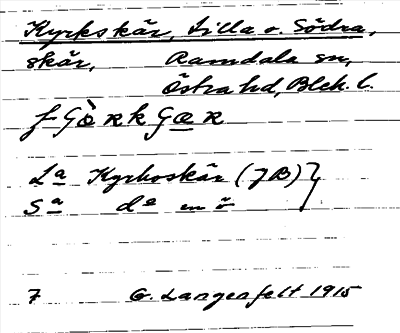 Kyrkskär, Lilla o. Södra,
skär, Ramdala sn,
Östra hd, Blek. l.
La Kyrkoskär (JB)
Sa do en ö
7 G. Langenfelt 1915